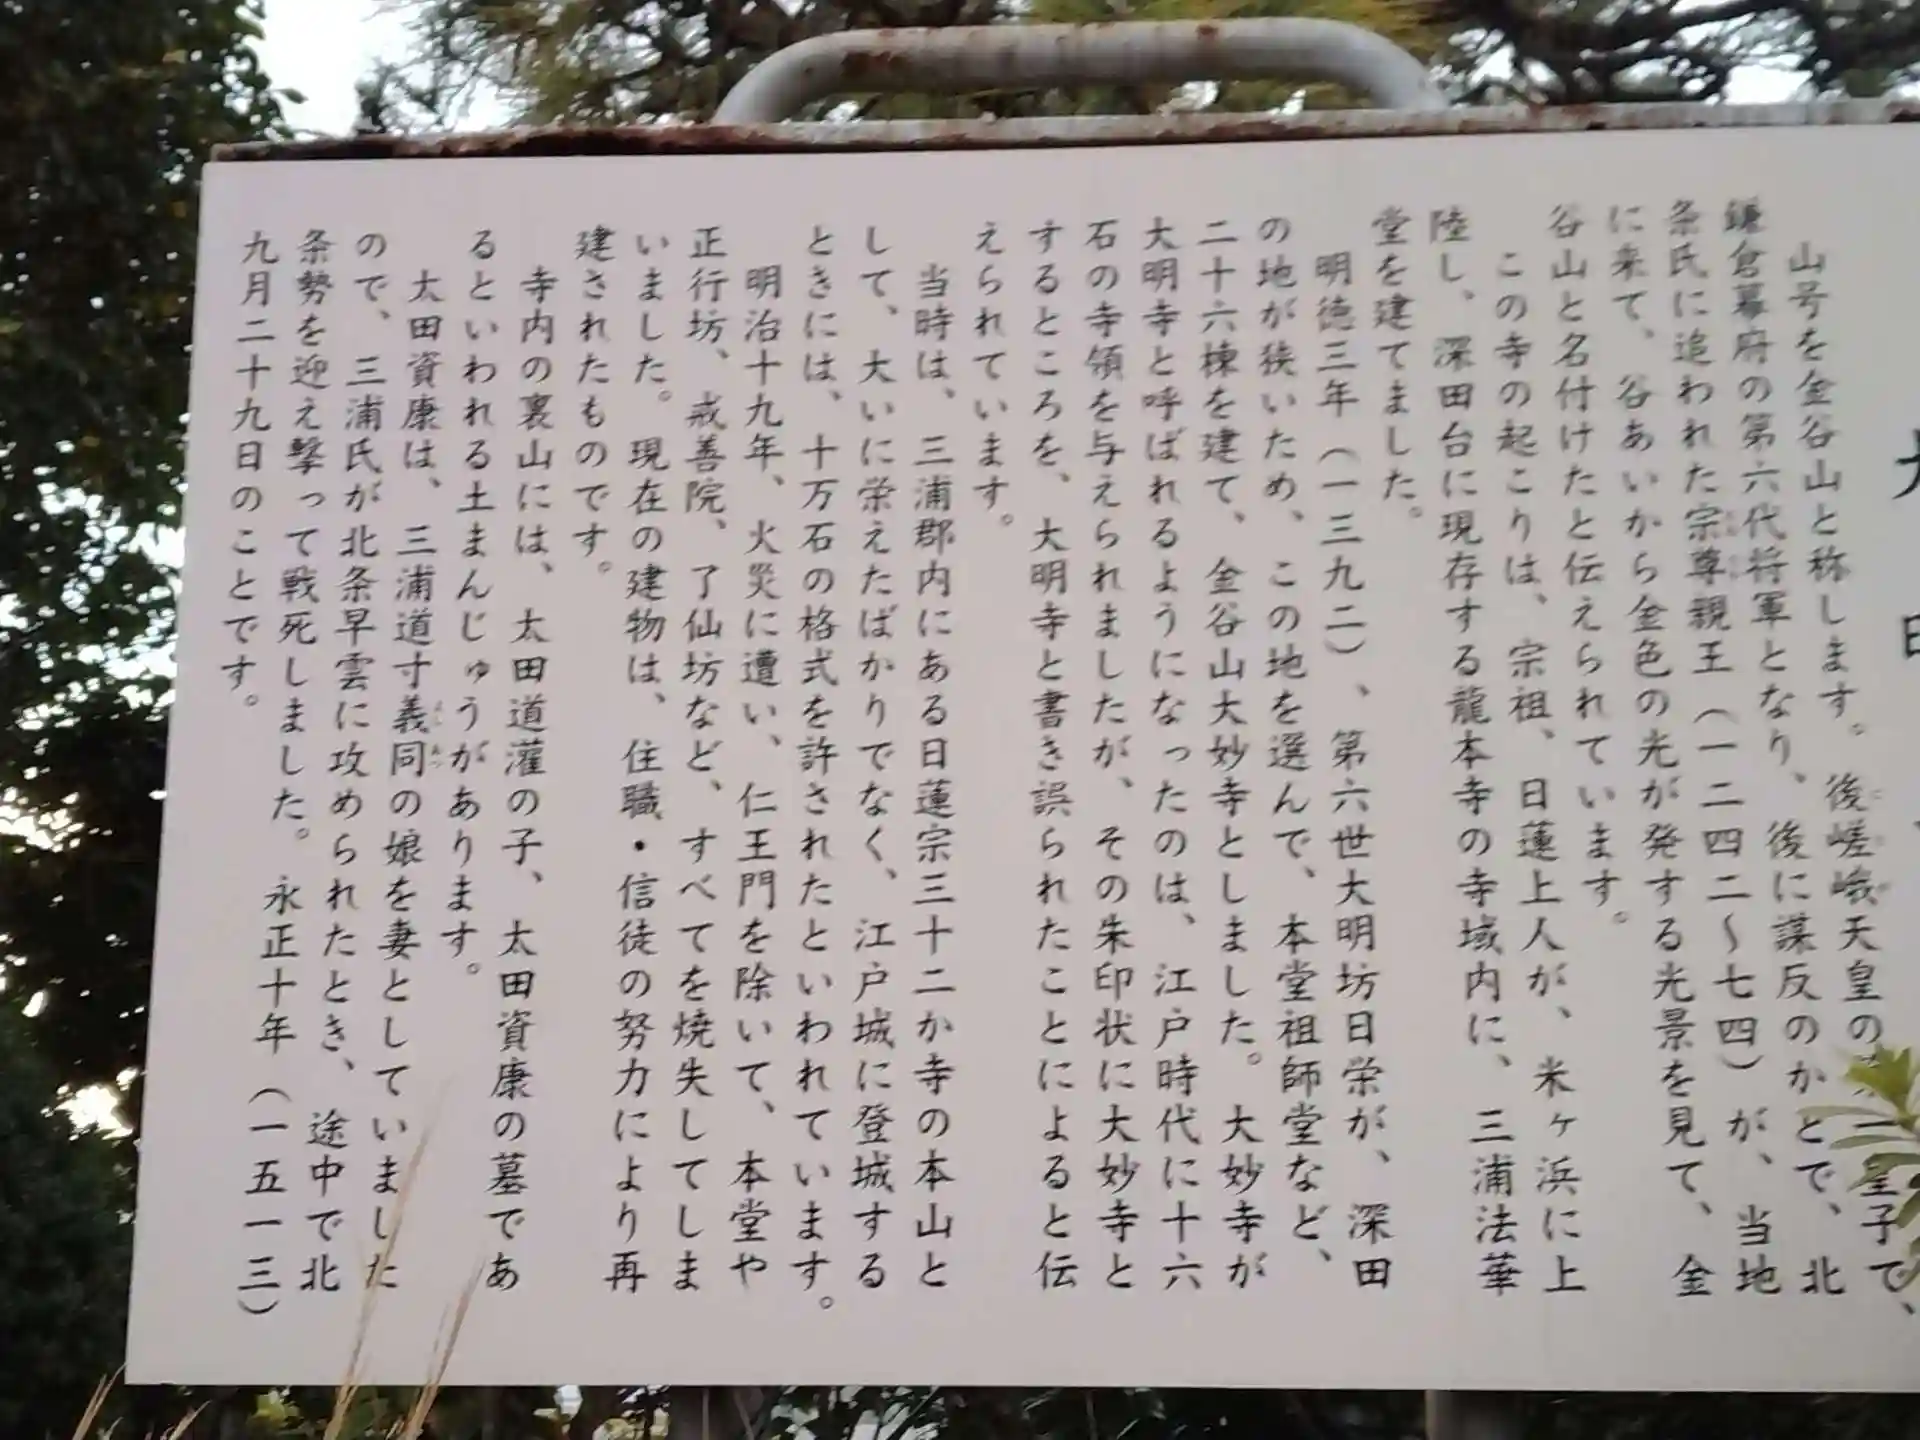 大明
山号を金谷山と称します。後嵯峨天皇の第一皇子で、
鎌倉幕府の第六代将軍となり、後に謀反のかどで、北
条氏に追われた宗尊親王（一二四二〜七四）が、当地
に来て、谷あいから金色の光が発する光景を見て、金
谷山と名付けたと伝えられています。
この寺の起こりは、宗祖、日蓮上人が、米ヶ浜に上
陸し、深田台に現存する龍本寺の寺域内に、三浦法華
堂を建てました。
明徳三年（一三九二）、第六世大明坊日栄が、深田
の地が狭いため、この地を選んで、本堂祖師堂など、
二十六棟を建て、金谷山大妙寺としました。大妙寺が
大明寺と呼ばれるようになったのは、江戸時代に十六
石の寺領を与えられましたが、その朱印状に大妙寺と
するところを、大明寺と書き誤られたことによると伝
えられています。
当時は、三浦郡内にある日蓮宗三十二か寺の本山と
して、大いに栄えたばかりでなく、江戸城に登城する
ときには、十万石の格式を許されたといわれています。
明治十九年、火災に遭い、仁王門を除いて、本堂や
正行坊、戒善院、了仙坊など、すべてを焼失してしま
いました。現在の建物は、住職・信徒の努力により再
建されたものです。
寺内の裏山には、太田道灌の子、太田資康の墓であ
るといわれる土まんじゅうがあります。
太田資康は、三浦道寸義同の娘を妻としていました
ので、三浦氏が北条早雲に攻められたとき、途中で北
条勢を迎え撃って戦死しました。永正十年（一五一三）
九月二十九日のことです。